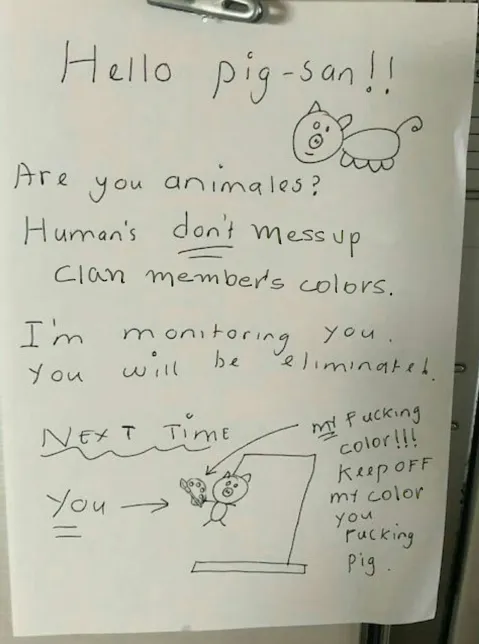 Hello pig-san!!
Are you animales?
Human's don't mess up
clan member's colors.
I'm monitoring you.
You will be eliminated.
NEXT TIME
You →
my fucking
color!!!
KEEP OFF
my color
you
fucking
pig.